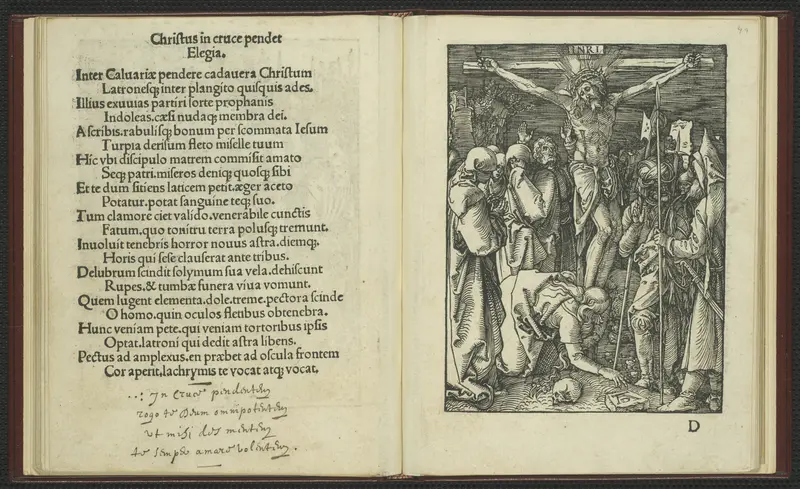 Chriſtus in cruce pendet
Elegia.
Inter Caluariæ pendere cadauera Chriſtum
Latroneſqꝫ inter plangito quiſquis ades.
Illius exuuias partiri ſorte prophanis
Indoleas.cæſi nudaqꝫ membra dei.
A ſcribis.rabuliſqꝫ bonum per ſcommata Ieſum
Turpia deriſum fleto miſelle tuum
Hic vbi diſcipulo matrem commiſit amato
Seqꝫ patri.miſeros deniqꝫ quoſqꝫ ſibi
Et te dum ſitiens laticem petit.æger aceto
Potatur.potat ſanguine teqꝫ ſuo.
Tum clamore ciet valido.venerabile cunctis
Fatum.quo tonitru terra poluſqꝫ tremunt.
Inuoluit tenebris horror nouus aſtra.diemqꝫ.
Horis qui ſeſe clauſerat ante tribus.
Delubrum ſcindit ſolymum ſua vela.dehiſcunt
Rupes.& tumbæ funera viua vomunt.
Quem lugent elementa.dole.treme.pectora ſcinde
O homo.quin oculos fletibus obtenebra.
Hunc veniam pete.qui veniam tortoribus ipſis
Optat.latroni qui dedit aſtra libens.
Pectus ad amplexus.en præbet ad oſcula frontem
Cor aperit.lachrymis te vocat atqꝫ vocat.
In Cruce pendentem
rogo te Deum omnipotentem
ut mihi des mentem
te semper amare volentem.
INRI
D